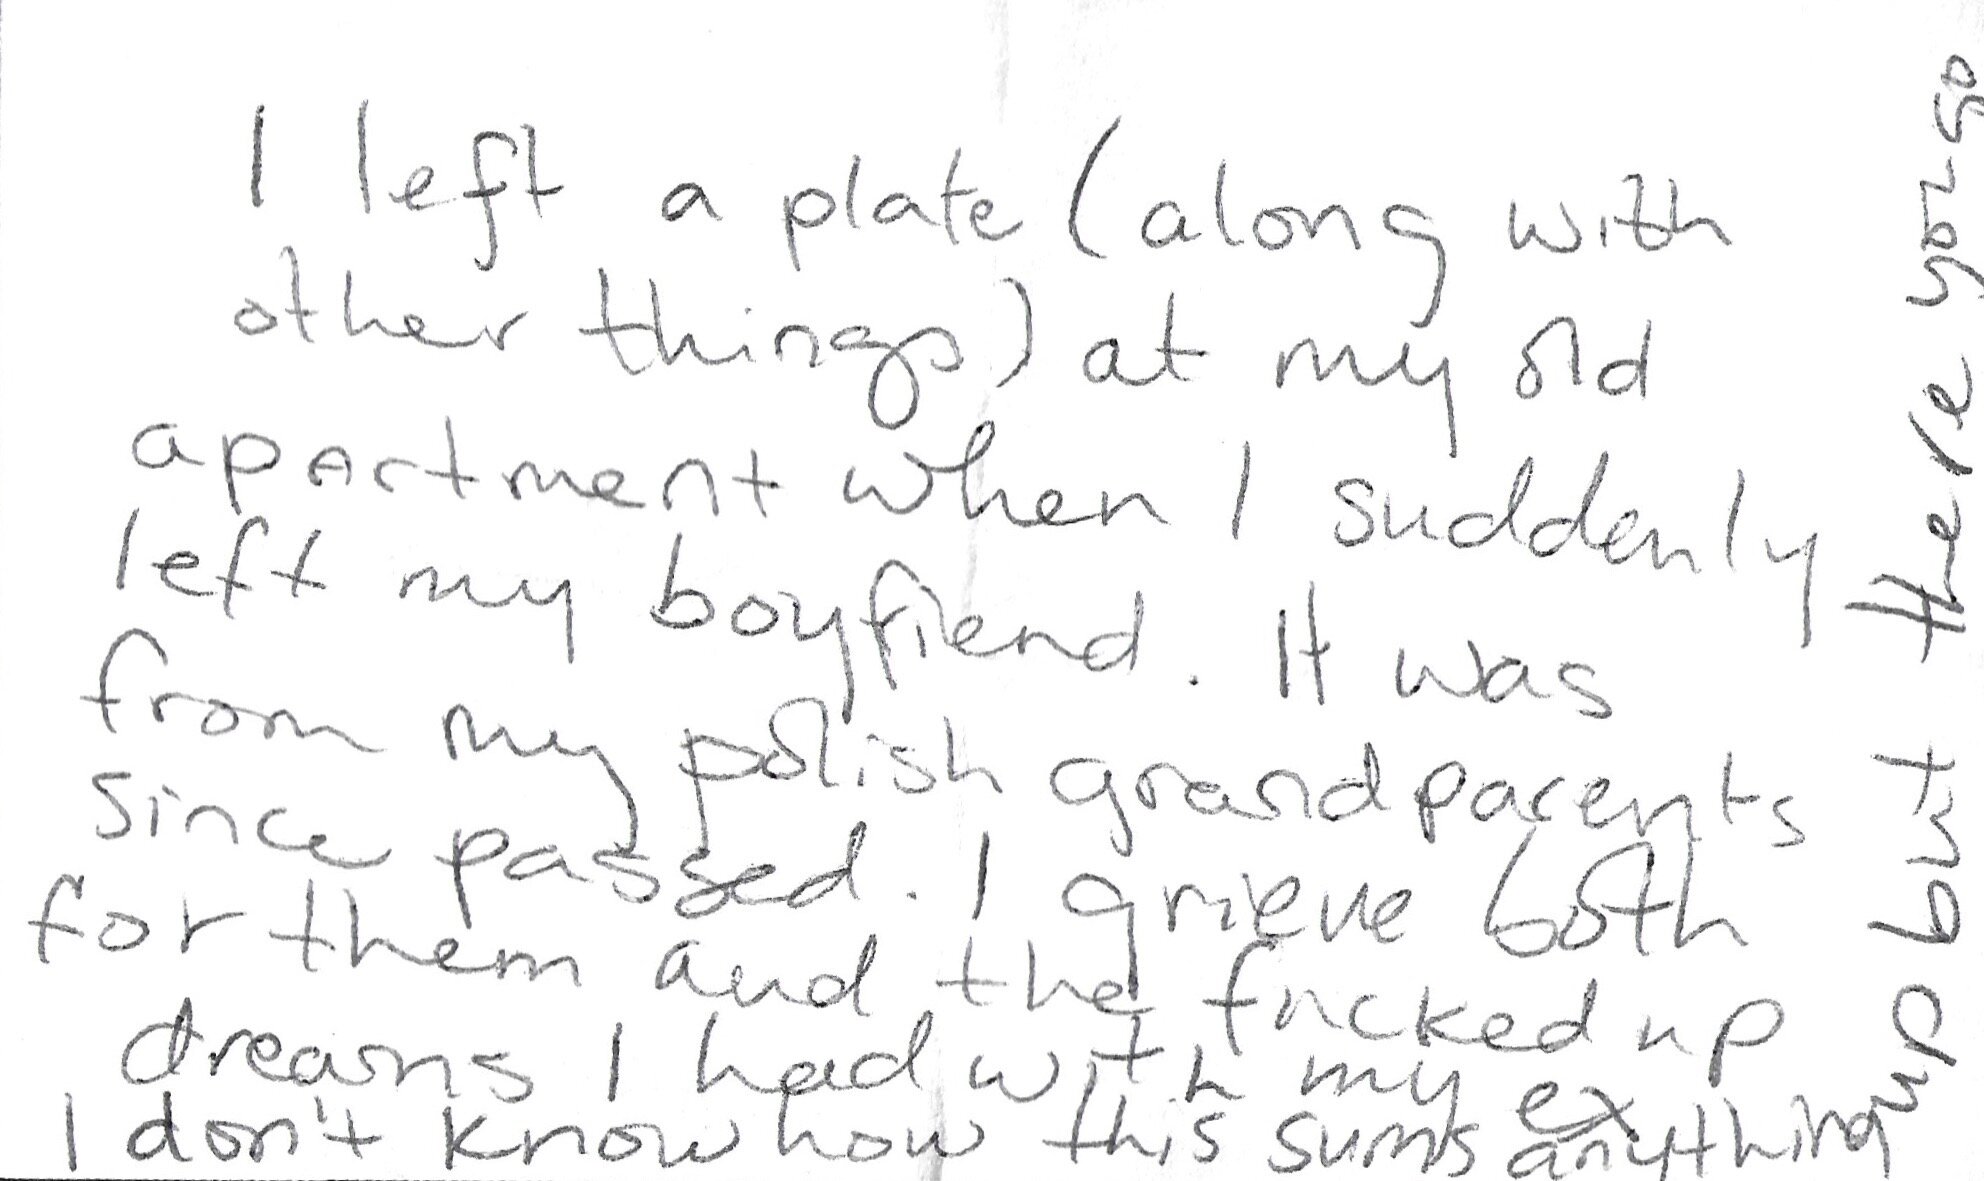 I left a plate (along with
other things) at my old
apartment when I suddenly
left my boyfiend. It was
from my polish grandparents
since passed. I grieve both
for them and the fucked up
dreams I had with my ex
I don't know how this sums anything
up but there ya go